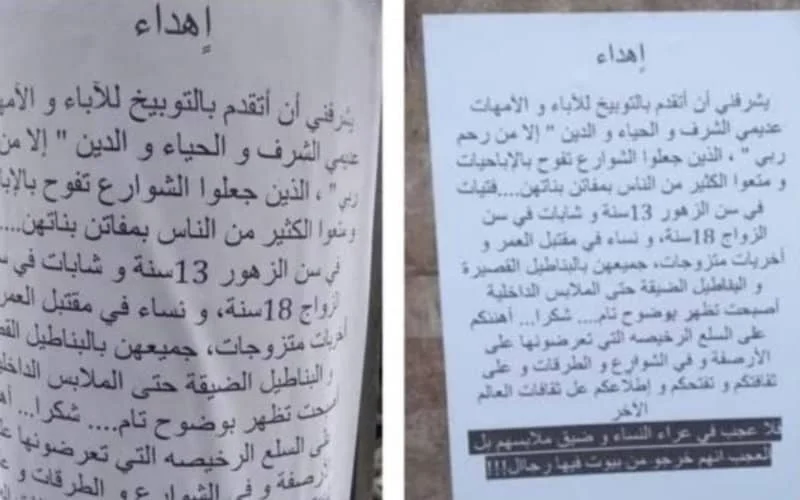 إهداء
يشرفني أن أتقدم بالتوبيخ للآباء و الأمها
عديمي الشرف و الحياء و الدين " إلا من
ربي " ، الذين جعلوا الشوارع تفوح بالإبا
ومتعوا الكثير من الناس بمفاتن بناتهن....
في سن الزهور 13سنة و شابات في س
الزواج 18سنة، و نساء في مقتبل العمر
أخريات متزوجات، جميعهن بالبناطيل الق
و البناطيل الضيقة حتى الملابس الداخلي
أصبحت تظهر بوضوح تام.... شكرا... أه
على السلع الرخيصه التي تعرضونها عا
الأرصفة و في الشوارع و الطرقات و ع
إهداء
يشرفني أن أتقدم بالتوبيخ للآباء و الأمهات
عديمي الشرف و الحياء و الدين " إلا من رحم
ربي " ، الذين جعلوا الشوارع تفوح بالإباحيات
و متعوا الكثير من الناس بمفاتن بناتهن....فتيات
في سن الزهور 13سنة و شابات في سن
الزواج 18سنة، و نساء في مقتبل العمر و
أخريات متزوجات، جميعهن بالبناطيل القصيرة
و البناطيل الضيقة حتى الملابس الداخلية
أصبحت تظهر بوضوح تام.... شكرا... أهننكم
على السلع الرخيصه التي تعرضونها على
الأرصفة و في الشوارع و الطرقات و على
ثقافتكم و تفتحكم و إطلاعكم عل ثقافات العالم
الآخر
فلا عجب في عراء النساء و ضيق ملابسهم بل
العجب انهم خرجو من بيوت فيها رجاال!!!